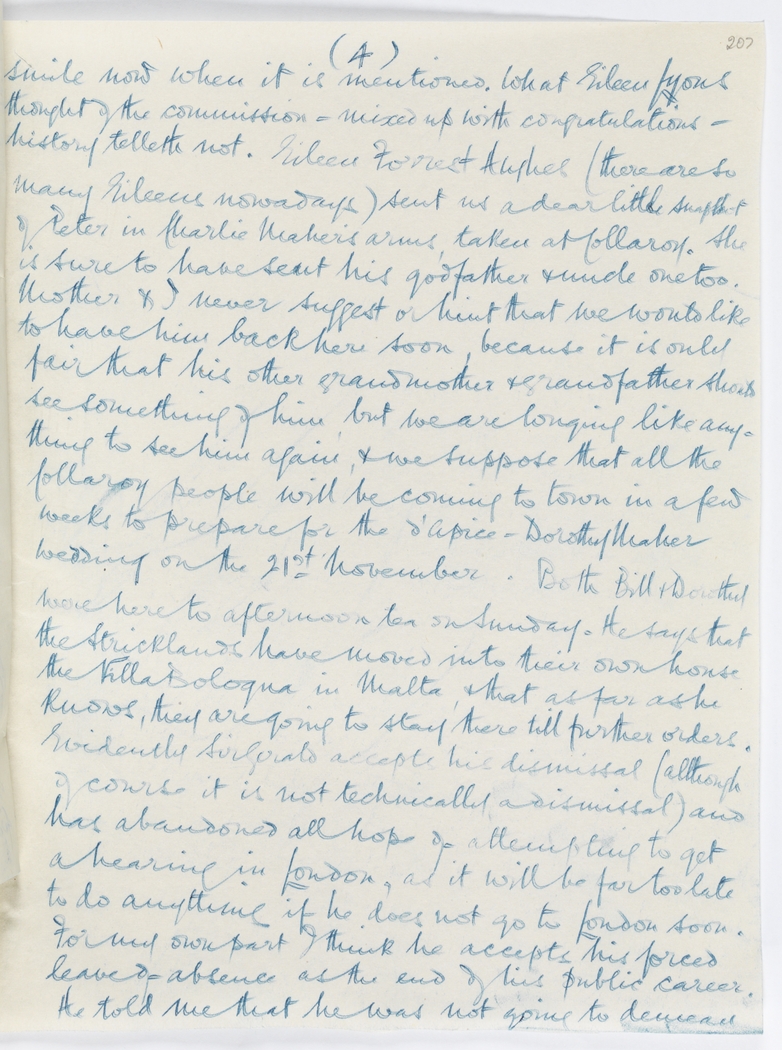 207
(4)
smile now when it is mentioned. What Eileen Lyons
thought of the commission = mixed up with congratulations –
history telleth not. Eileen Forrest Hughes (there are so
many Eileens nowadays) sent us a dear little snapshot
of Peter in Charlie Maher's arms, taken at Collaroy. She
is sure to have sent his godfather & uncle one too.
Mother & I never suggest or hint that we would like
to have him back here soon, because it is only
fair that his other grandmother & grandfather should
see something of him, but we are longing like any-
thing to see him again, & we suppose that all the
Collaroy people will be coming to town in a few
weeks to prepare for the d'Apice = Dorothy Maher
wedding on the 21st November. Both Bill & Dorothy
were here to afternoon tea on Sunday. He says that
the Stricklands have moved into their own house
the Villa Bologna in Malta, & that as far as he
knows, they are going to stay there till further orders.
Evidently Sir Gerald accepts his dismissal (although
of course it is not technically a dismissal) and
has abandoned all hope of attempting to get
a hearing in London, as it will be far too late
to do anything if he does not go to London soon.
For my own part I think he accepts his forced
leave of absence as the end of his public career.
He told me that he was not going to demean